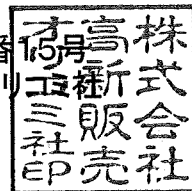 株式会社
高新販売
オリコミ社印
15号
リコミ社